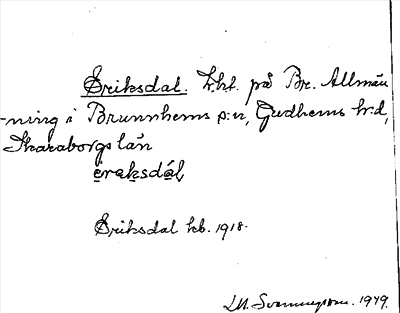 Eriksdal. h.ht. på Br. Allmän
-ning i Brunnhems s:n, Gudhems h:d,
Skaraborgs län
eraksdál,
Eriksdal kb. 1918.
1949.